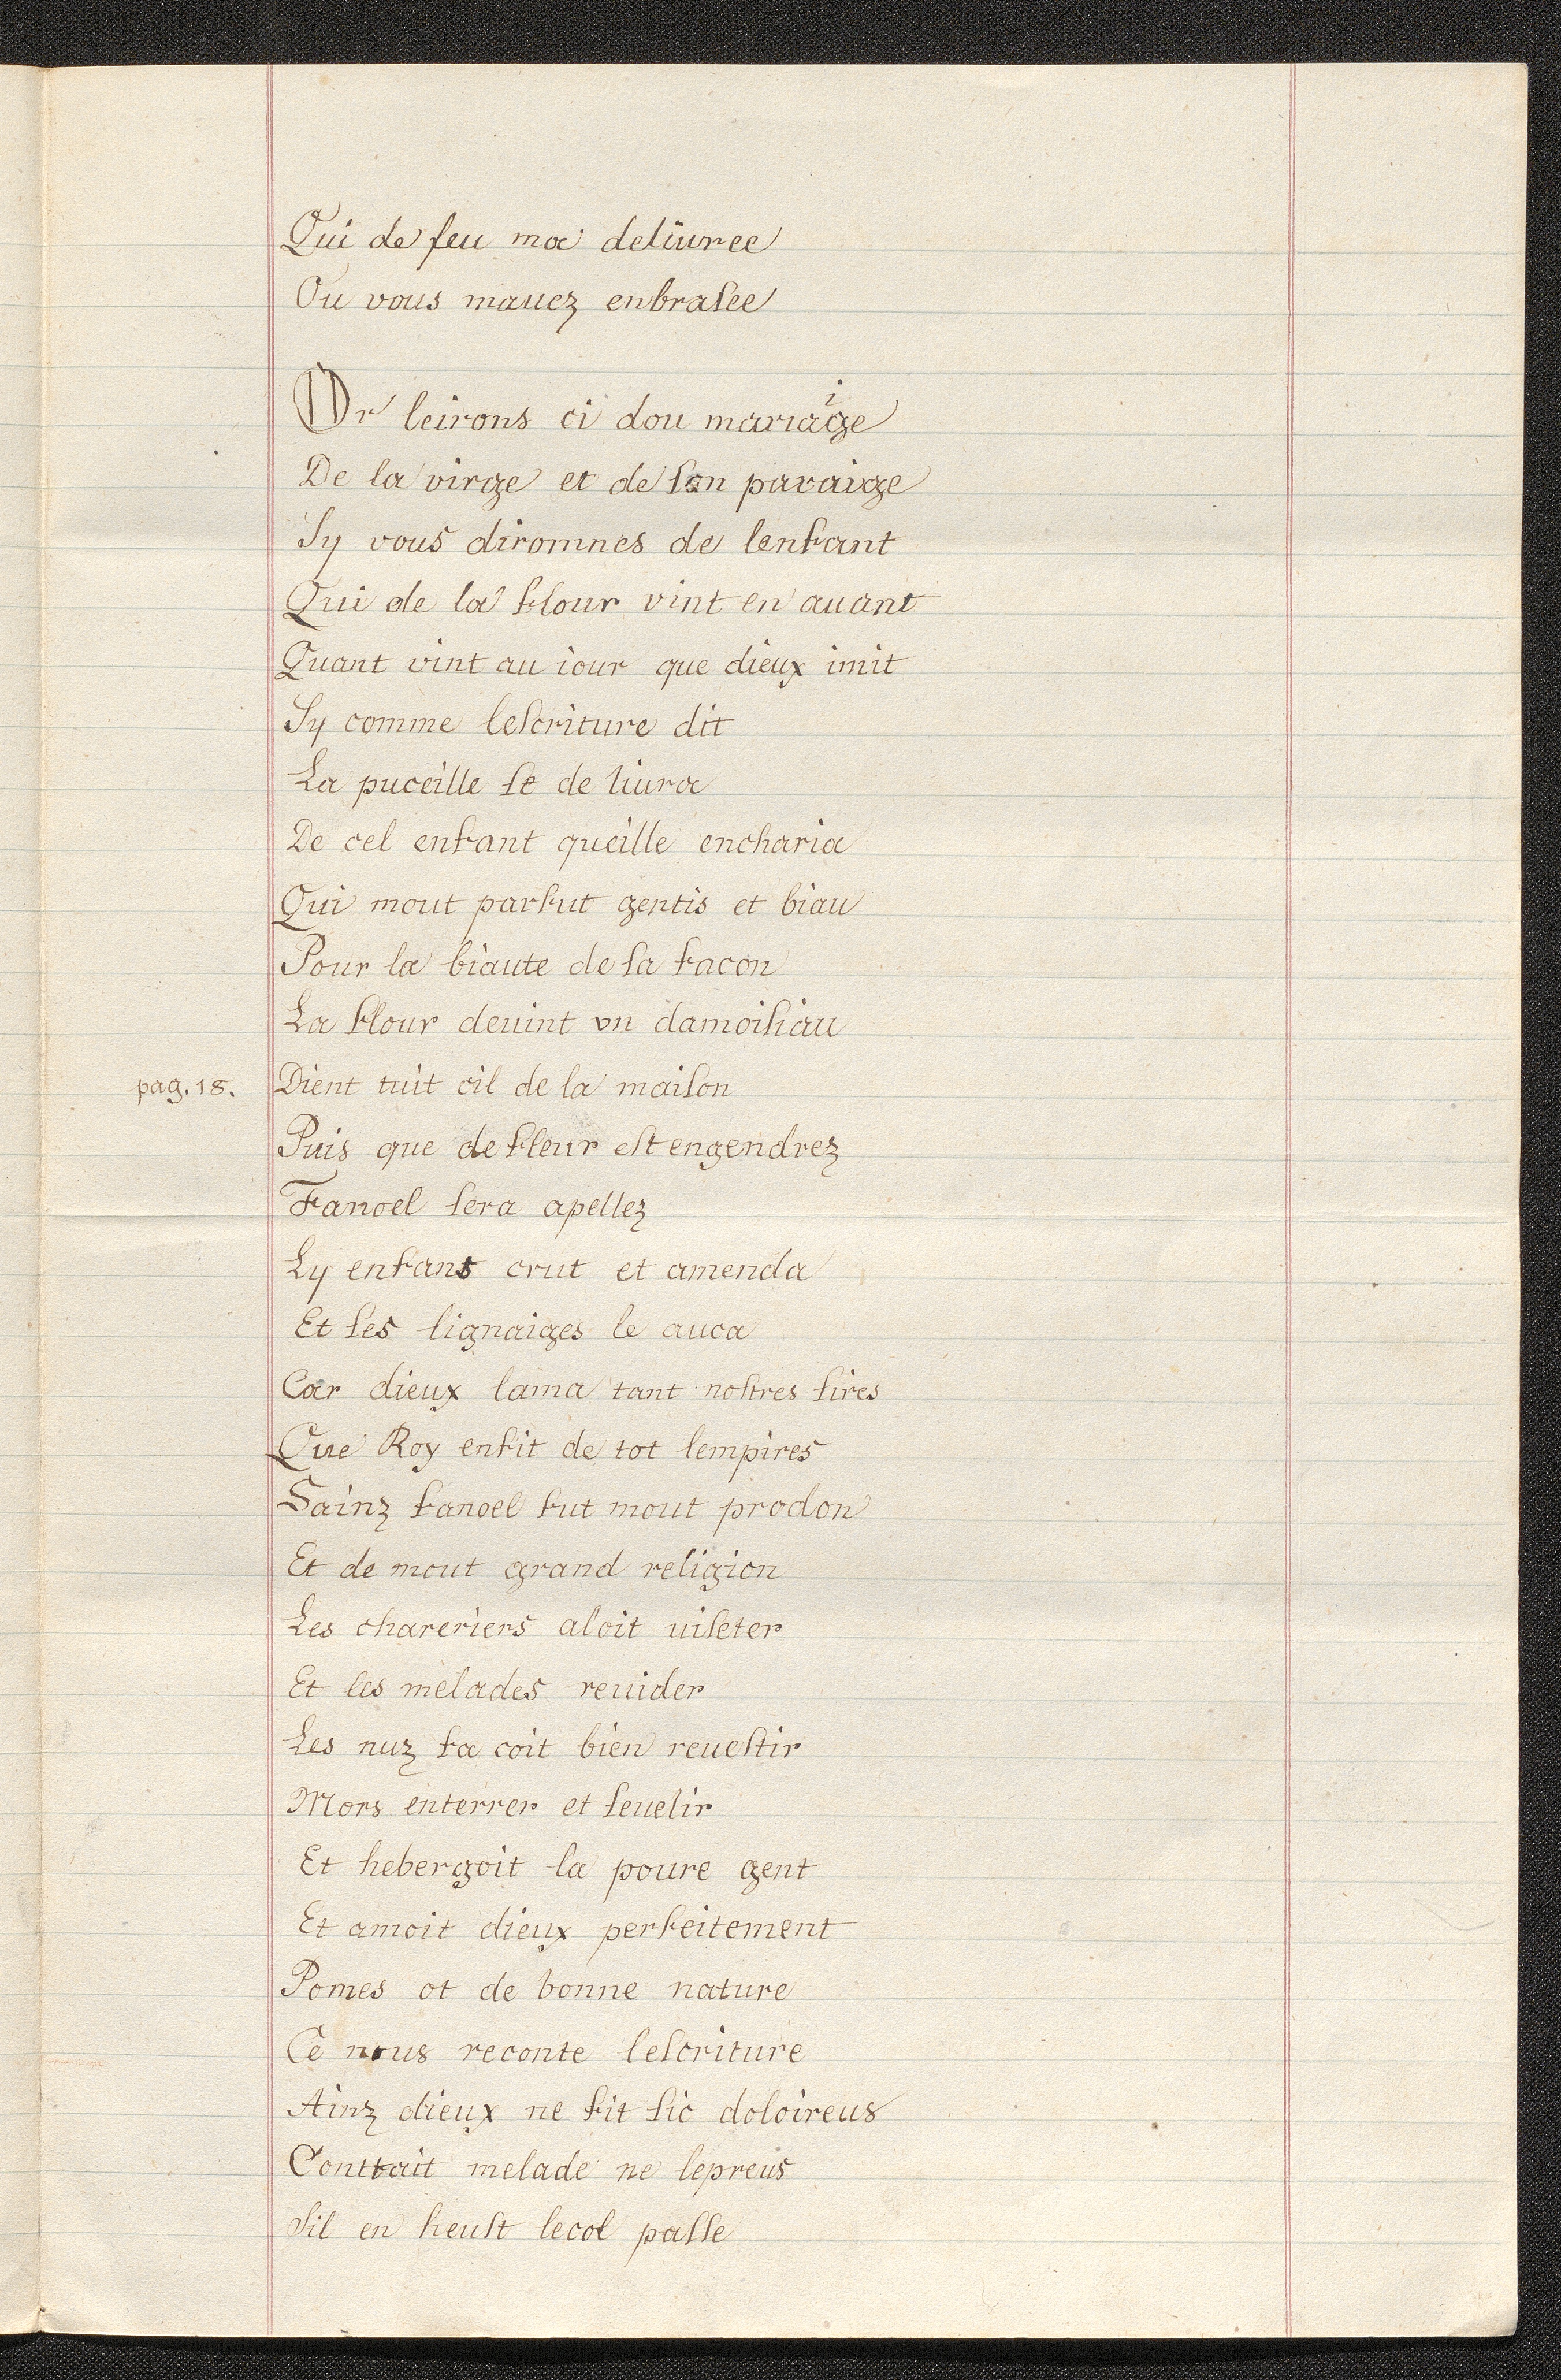 Qui de feu ma deliuree
Ou vous mauez enbraſee
Or leirons ci dou mariaige
De la virge et de ſon paraige
Sy vous diromnes de lenfant
Qui de la flour vint en auant
Quant vint au iour que dieux imit
Sy comme leſcriture dit
La puceille ſe de liura
De cel enfant queille encharia
Qui mout parfut gentis et biau
Pour la biaute de ſa facon
La flour deuint vn damoiſiau
pag. 18. Dient tuit cil de la maiſon
Puis que de fleur eſt engendrez
Fanoel ſera apellez
Ly enfans crut et amenda
Et ſes lignaiges le auca
Car dieux lama tant noſtres ſires
Que Roy enfit de tot lempires
Sainz fanoel fut mout prodon
Et de mout grand religion
Les chareriers aloit uiſeter
Et les melades reuider
Les nuz fa coit bien reueſtir
Mors enterrer et ſeuelir
Et hebergoit la poure gent
Et amoit dieux perfeitement
Pomes ot de bonne nature
Ce nous reconte leſcriture
Ainz dieux ne fit ſic doloireus
Conttait melade ne lepreus
Sil en heuſt lecol paſſe